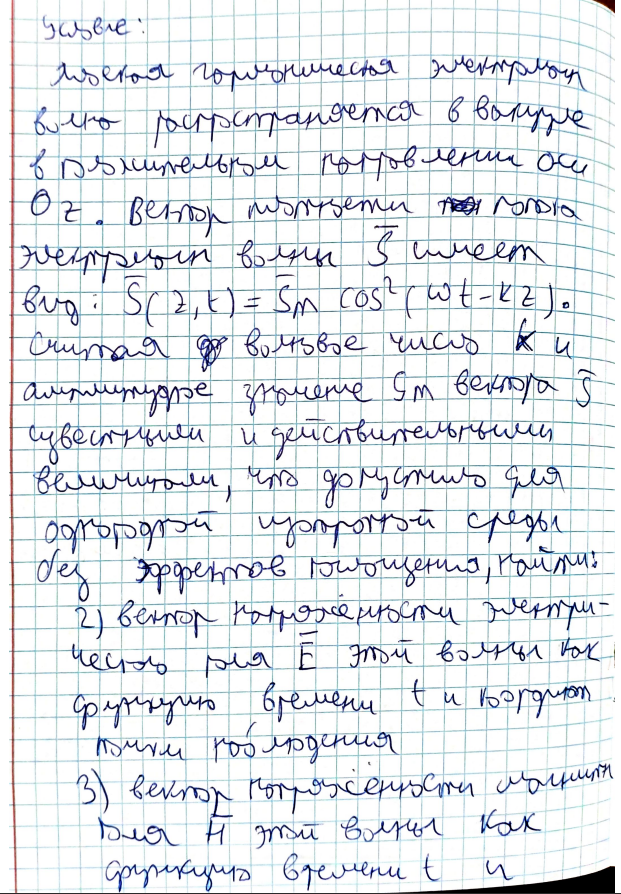 Условие:
Плоская гармоническая электромагн
волна распространяется в вакууме
в положительном направлении оси
Oz. Вектор плотности потока
электромагн волны S̄ имеет
вид: S̄(z,t) = S̄m cos²(ωt-kz).
Считая волновое число k и
амплитудное значение Sm вектора S̄
известными и действительными
величинами, что допустимо для
однородной изотропной среды
без эффектов поглощения, найти:
2) вектор напряжённости электри-
ческого поля Ē этой волны как
функцию времени t и координат
точки наблюдения
3) вектор напряжённости магнитн
поля H̄ этой волны как
функцию времени t и